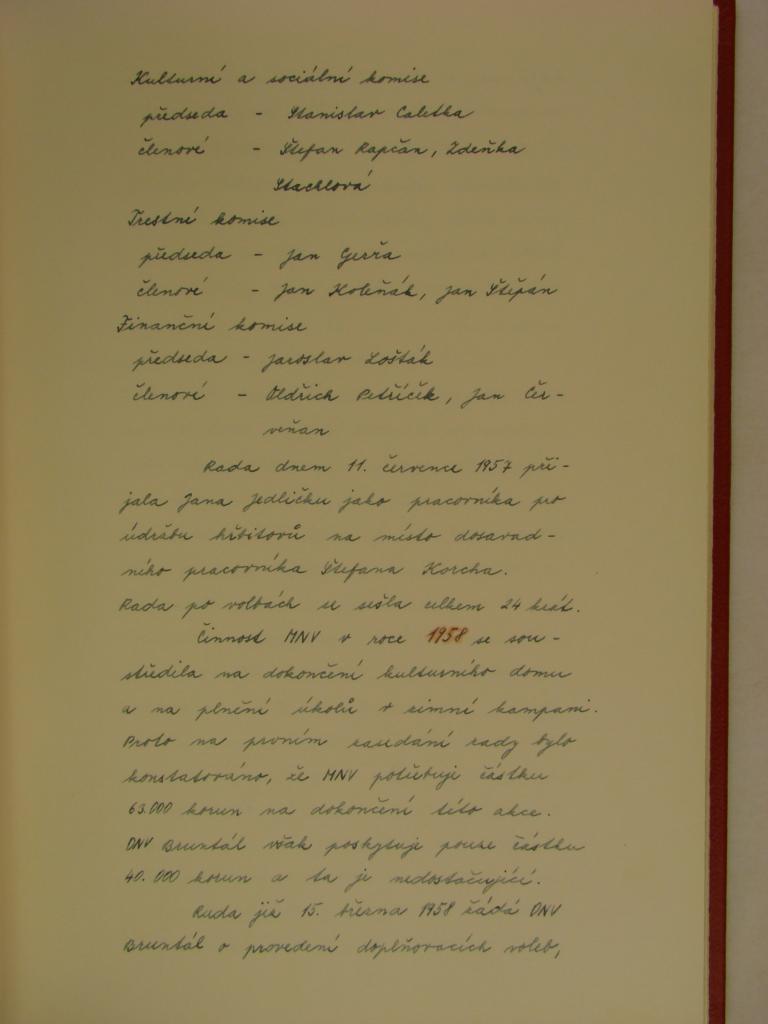 Kulturní a sociální komise
předseda - Stanislav Caletka
členové - Štefan Rapčan, Zdeňka
Stachlová
Trestní komise
předseda - Jan Gerža
členové - Jan Holeňák, Jan Štěpán
Finanční komise
předseda - Jaroslav Lošťák
členové - Oldřich Petříček, Jan Čer-
veňan
Rada dnem 11. července 1957 při-
jala Jana Jedličku jako pracovníka pro
údržbu hřbitovů na místo dosavad-
ního pracovníka Štefana Korcha.
Rada po volbách se sešla celkem 24 krát.
Činnost MNV v roce 1958 se sou-
středila na dokončení kulturního domu
a na plnění úkolů v zimní kampani.
Proto na prvním zasedání rady bylo
konstatováno, že MNV potřebuje částku
63.000 korun na dokončení této akce.
ONV Bruntál však poskytuje pouze částku
40.000 korun a ta je nedostačující.
Rada již 15. března 1958 žádá ONV
Bruntál o provedení doplňovacích voleb,